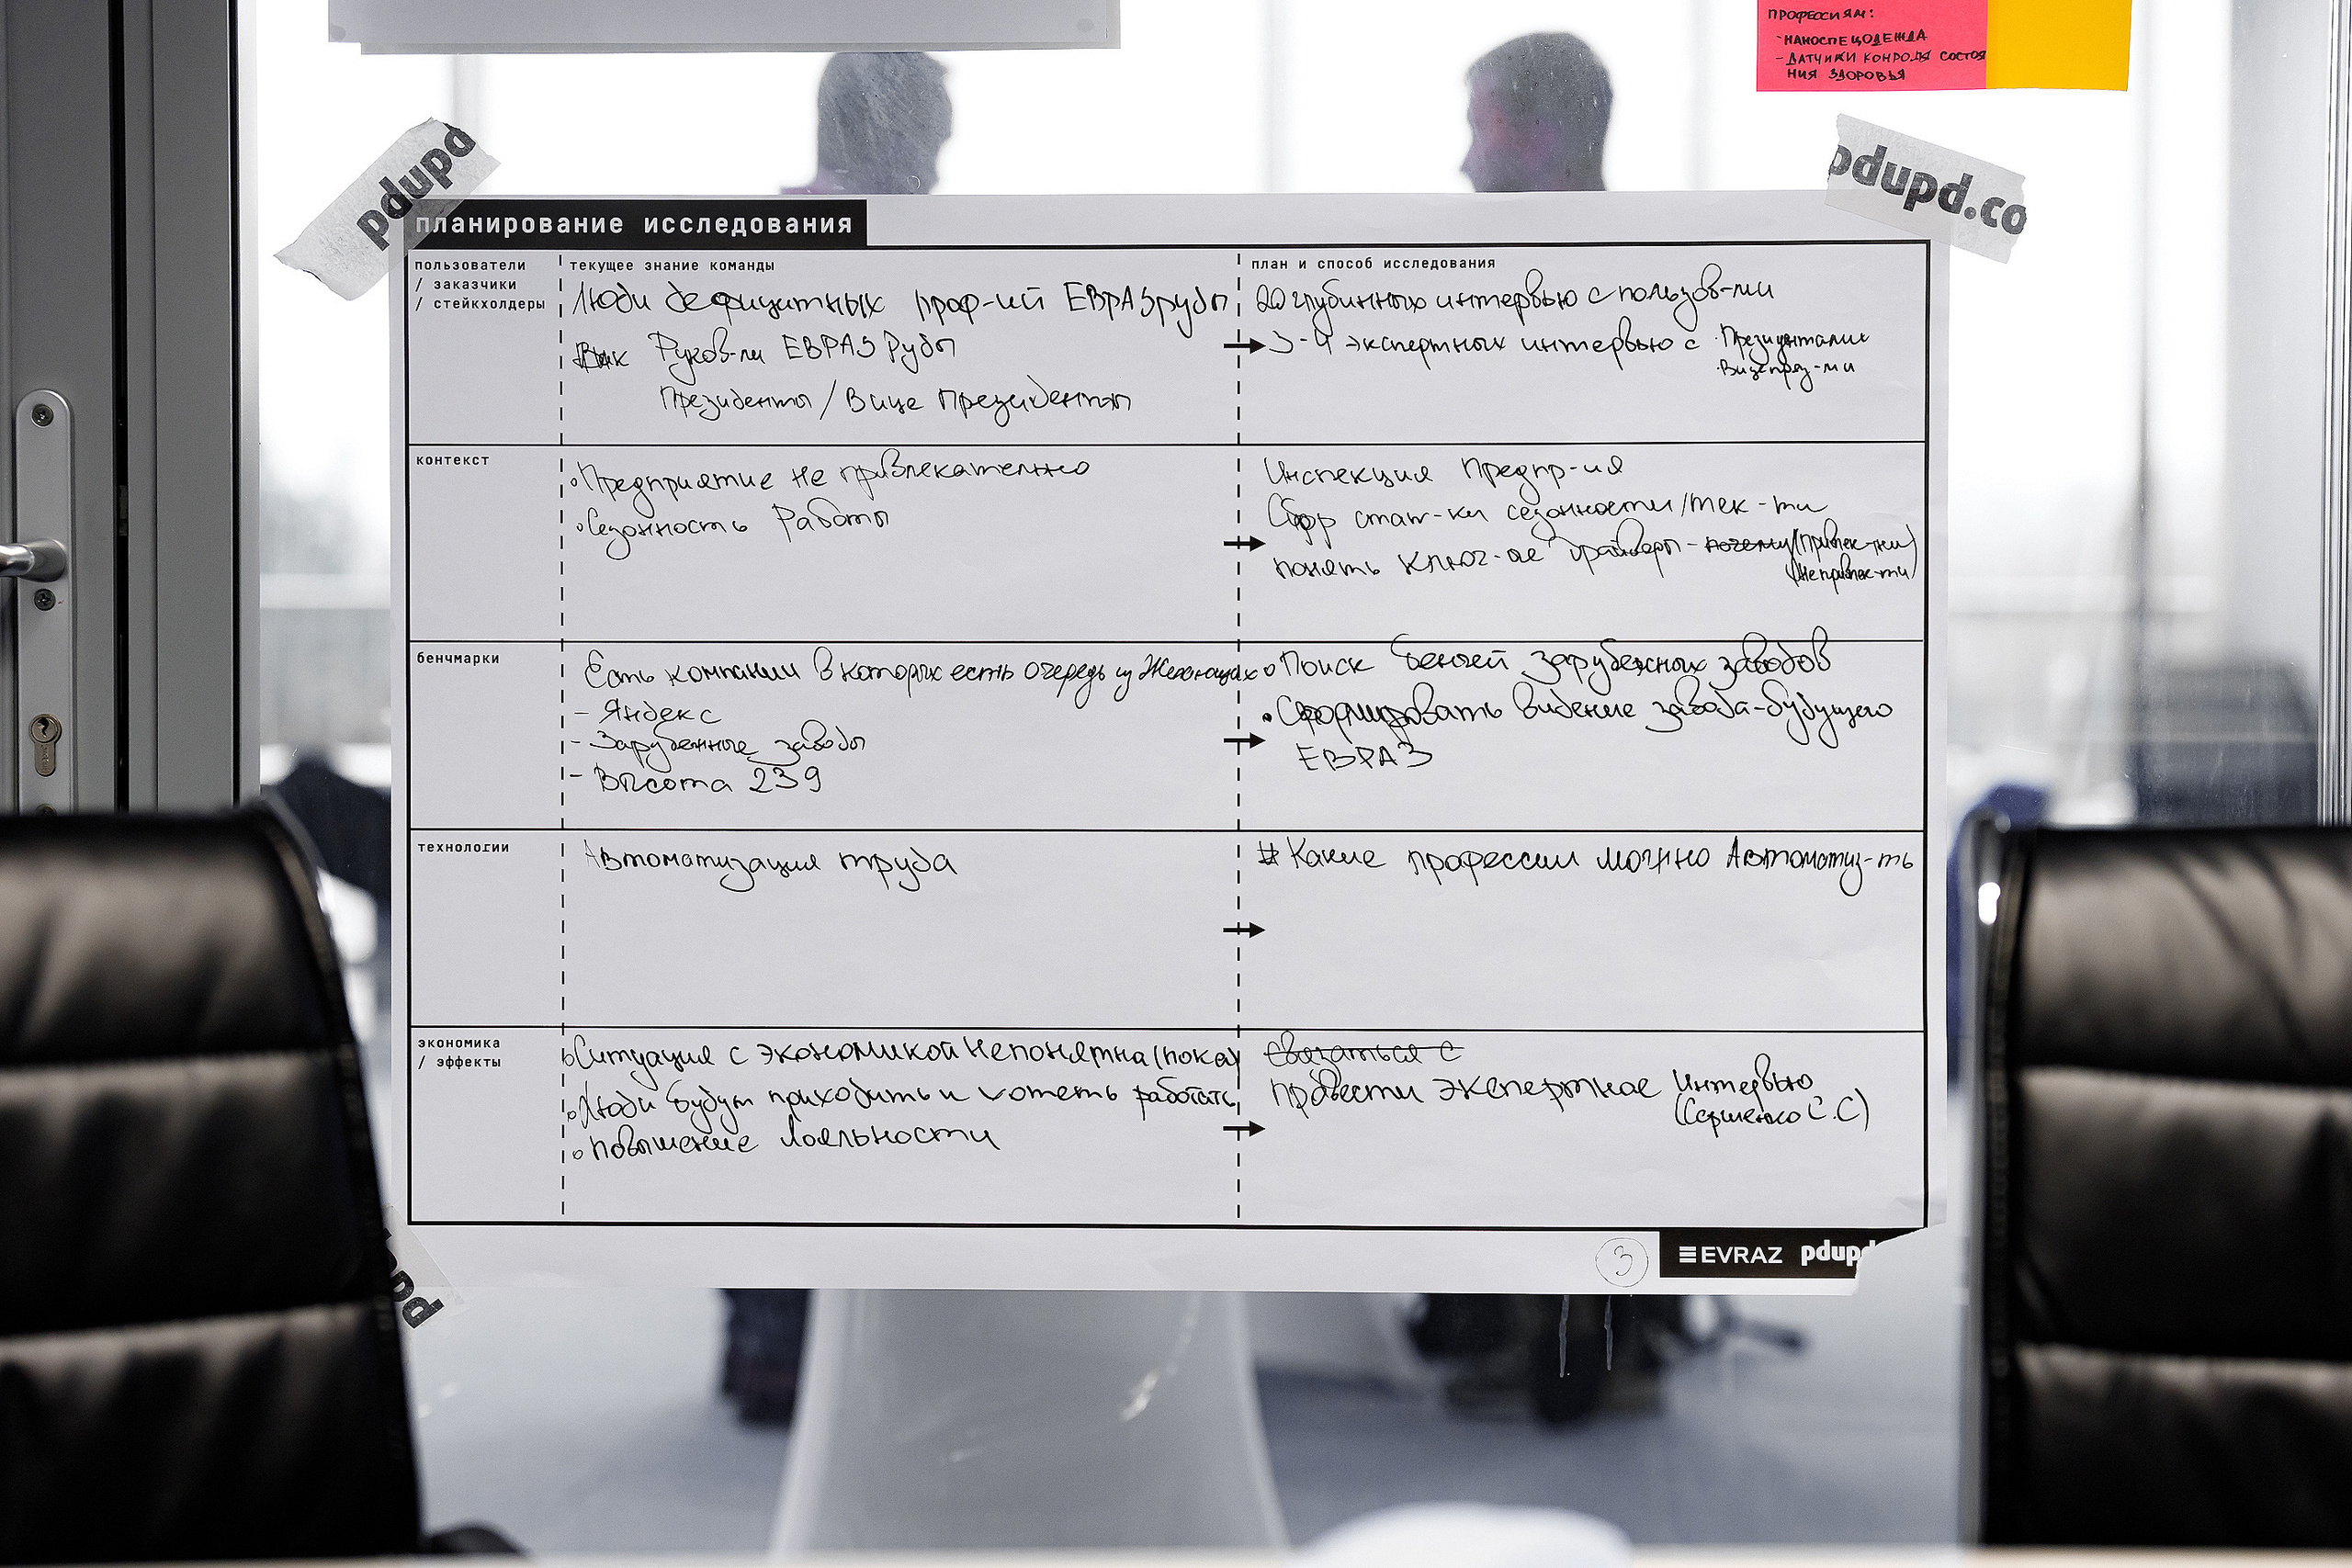 ПРОФЕССИЯМ:
- НАНОСПЕЦОДЕЖДА
- ДАТЧИКИ КОНРОЛЯ СОСТОЯ
НИЯ ЗДОРОВЬЯ
pdupd
pdupd.co
планирование исследования
пользователи
/ заказчики
/ стейкхолдеры
текущее знание команды
Люди дефицитных проф-ий ЕВРАЗруды
Руков-ли ЕВРАЗ Руды
Президенты / Вице президенты
план и способ исследования
20 глубинных интервью с пользов-ми
3-4 экспертных интервью с · Президентами
· Вицепрез-ми
контекст
Предприятие не привлекательно
Сезонность Работы
Инспекция Предпр-ия
Сбор стат-ки сезонности/тек-ти
понять ключ-ые драйверы - почему (привлек-ти)
(непривлек-ти)
бенчмарки
Есть компании в которых есть очередь из Желающих
- Яндекс
- Зарубежные заводы
- Высота 239
Поиск бенчей зарубежных заводов
Сформировать видение завода-будущего
ЕВРАЗ
технологии
Автоматизация труда
# Какие профессии можно Автоматиз-ть
экономика
/ эффекты
Ситуация с экономикой непонятна (пока)
Люди будут приходить и хотеть работать
повышение лояльности
связаться с
провести экспертное интервью
С.С)
3
EVRAZ pdupd
pd